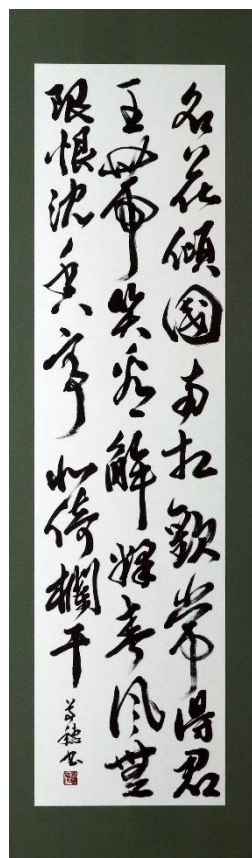 名花傾國両相歓常得君
王帶笑看解釋春風無
限恨沈香亭北倚欄干
書